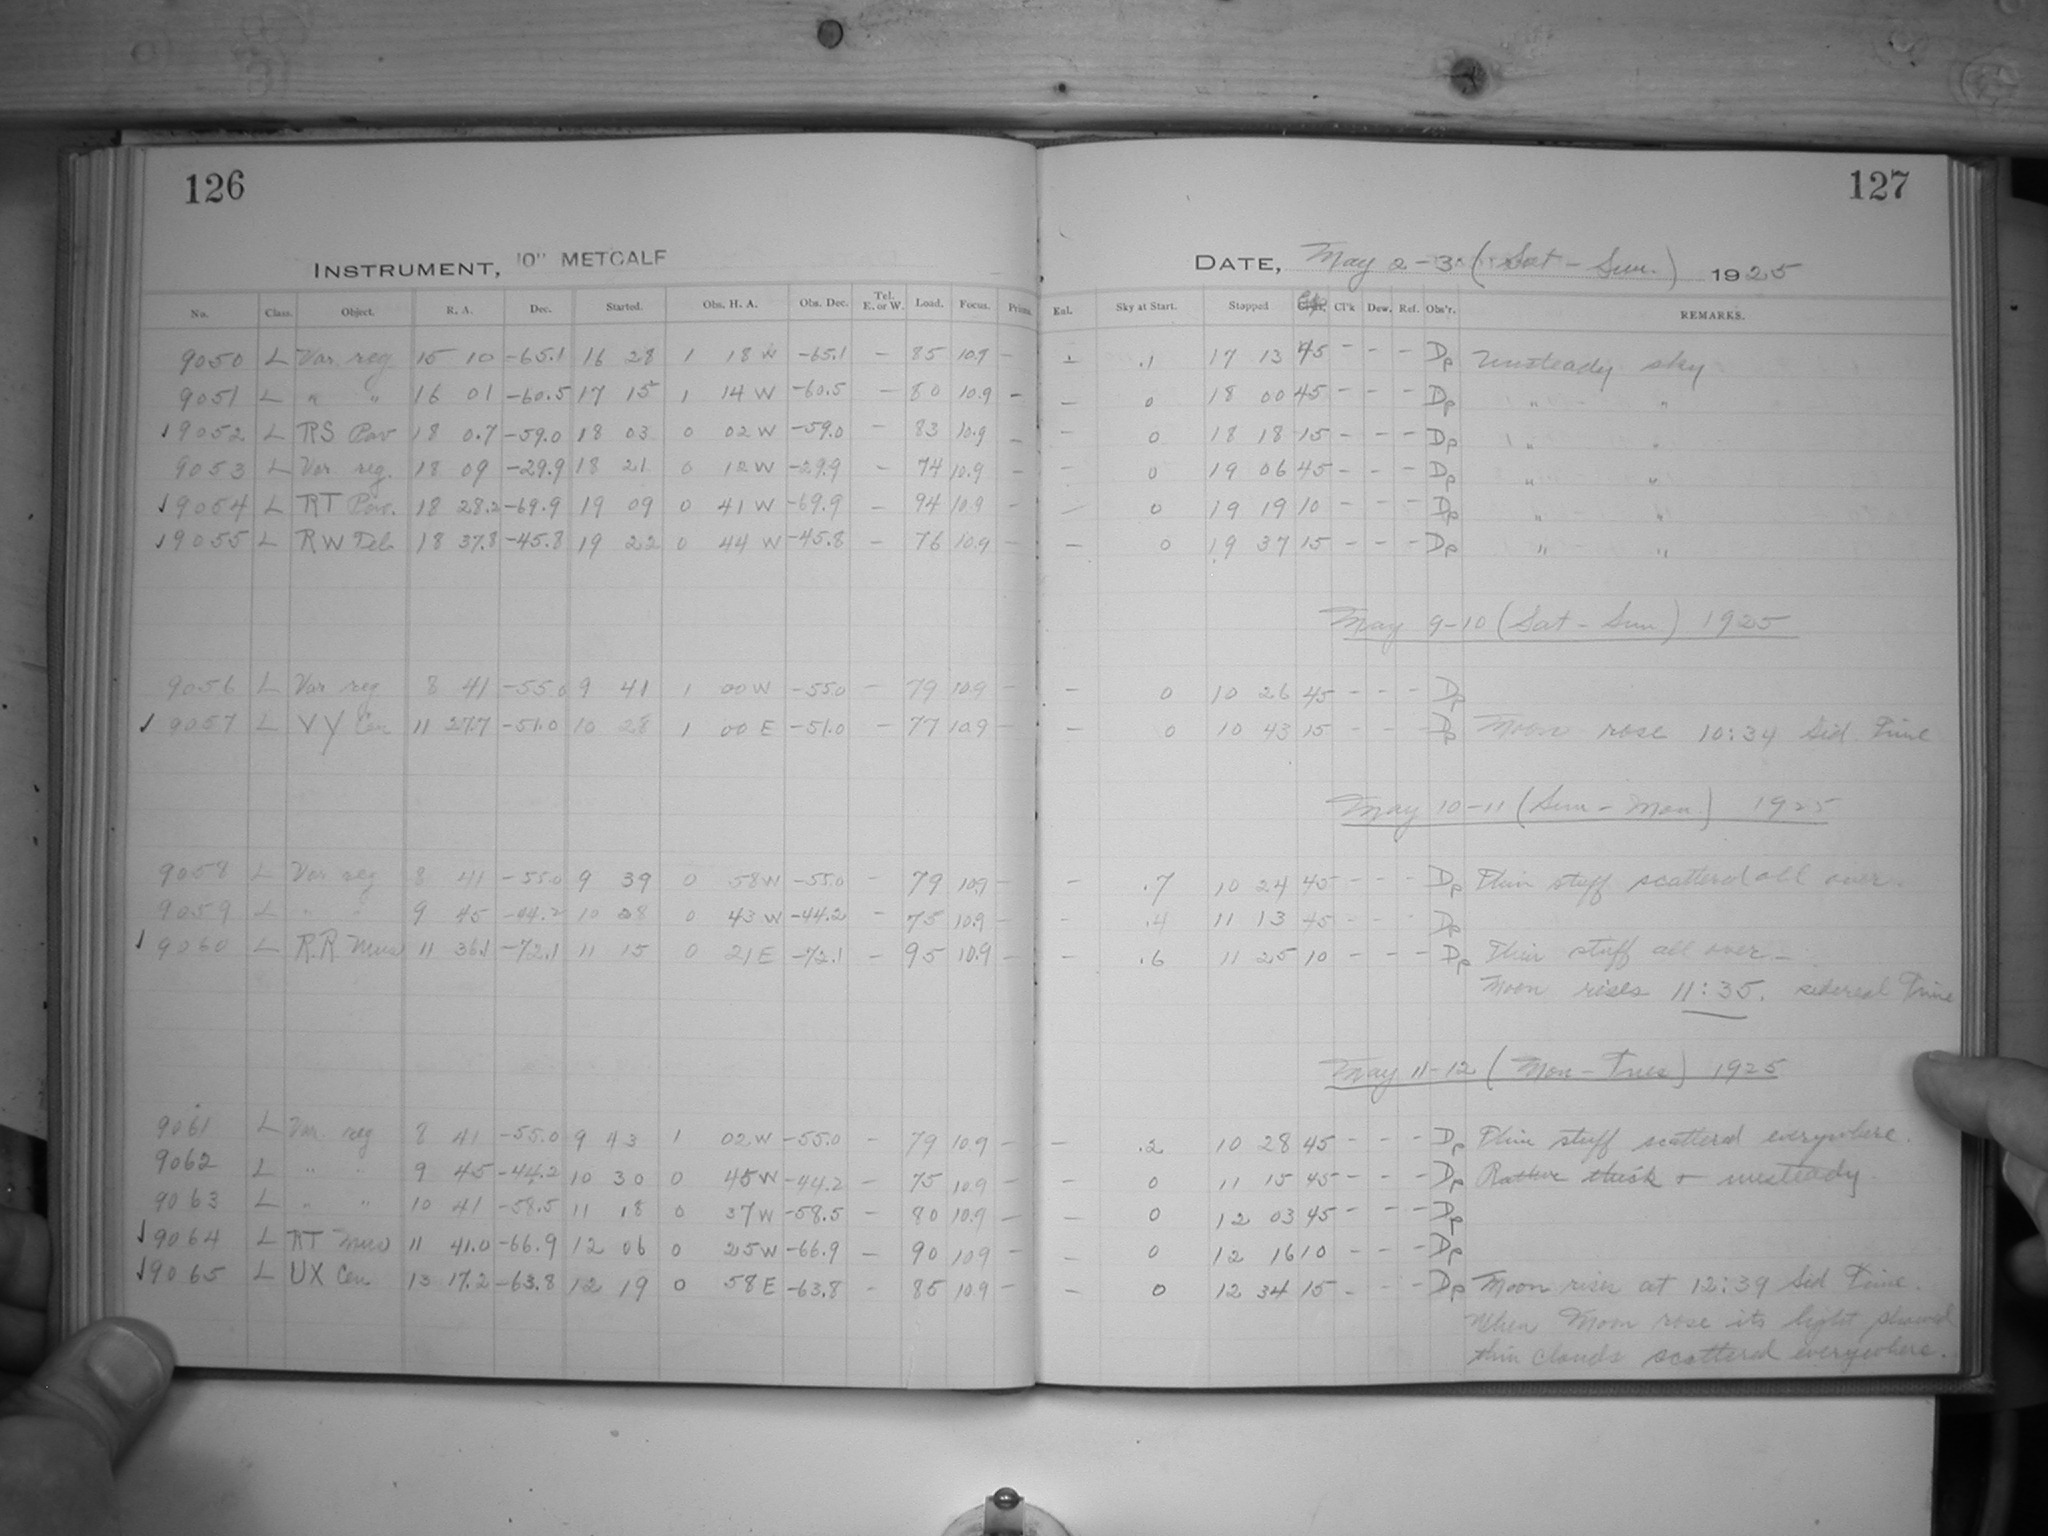 126
127
INSTRUMENT, 10" METCALF
DATE, May 2-3 (Sat - Sun.) 1925
No. Class. Object. R. A. Dec. Started. Obs. H. A. Obs. Dec. Tel. E. or W. Load. Focus. Prisms. Enl. Sky at Start. Stopped Exp Cl'k Dew. Ref. Obs'r. REMARKS.
9050 L Var. reg. 15 10 -65.1 16 28 1 18 W -65.1 - 85 10.9 - - .1 17 13 45 - - - Dp Unsteady sky
9051 L " " 16 01 -60.5 17 15 1 14 W -60.5 - 80 10.9 - - 0 18 00 45 - - - Dp " "
√ 9052 L RS Pav 18 0.7 -59.0 18 03 0 02 W -59.0 - 83 10.9 - - 0 18 18 15 - - - Dp " "
9053 L Var. reg. 18 09 -29.9 18 21 0 12 W -29.9 - 74 10.9 - - 0 19 06 45 - - - Dp " "
√ 9054 L RT Pav. 18 28.2 -69.9 19 09 0 41 W -69.9 - 94 10.9 - - 0 19 19 10 - - - Dp " "
√ 9055 L RW Tel. 18 37.8 -45.8 19 22 0 44 W -45.8 - 76 10.9 - - 0 19 37 15 - - - Dp " "
May 9-10 (Sat - Sun) 1925
9056 L Var reg 8 41 -55.0 9 41 1 00 W -55.0 - 79 10.9 - - 0 10 26 45 - - - Dp
√ 9057 L VY Cen 11 27.7 -51.0 10 28 1 00 E -51.0 - 77 10.9 - - 0 10 43 15 - - - Dp Moon rose 10:34 Sid. Time
May 10-11 (Sun - Mon.) 1925
9058 L Var reg 8 41 -55.0 9 39 0 58 W -55.0 - 79 10.9 - - .7 10 24 45 - - - Dp Thin stuff scatterd all over.
9059 L " " 9 45 -44.2 10 28 0 43 W -44.2 - 75 10.9 - - .4 11 13 45 - - - Dp
√ 9060 L RR Mus 11 36.1 -72.1 11 15 0 21 E -72.1 - 95 10.9 - - .6 11 25 10 - - - Dp Thin stuff all over -
Moon rises 11:35. sidereal Time
May 11-12 (Mon - Tues) 1925
9061 L Var reg 8 41 -55.0 9 43 1 02 W -55.0 - 79 10.9 - - .2 10 28 45 - - - Dp Thin stuff scattered everywhere.
9062 L " " 9 45 -44.2 10 30 0 45 W -44.2 - 75 10.9 - - 0 11 15 45 - - - Dp Rather thick & unsteady
9063 L " " 10 41 -58.5 11 18 0 37 W -58.5 - 80 10.9 - - 0 12 03 45 - - - Dp
√ 9064 L RT Mus 11 41.0 -66.9 12 06 0 25 W -66.9 - 90 10.9 - - 0 12 16 10 - - - Dp
√ 9065 L UX Cen 13 17.2 -63.8 12 19 0 58 E -63.8 - 85 10.9 - - 0 12 34 15 - - - Dp Moon rises at 12:39 Sid Time.
When Moon rose its light showed
thin clouds scattered everywhere.